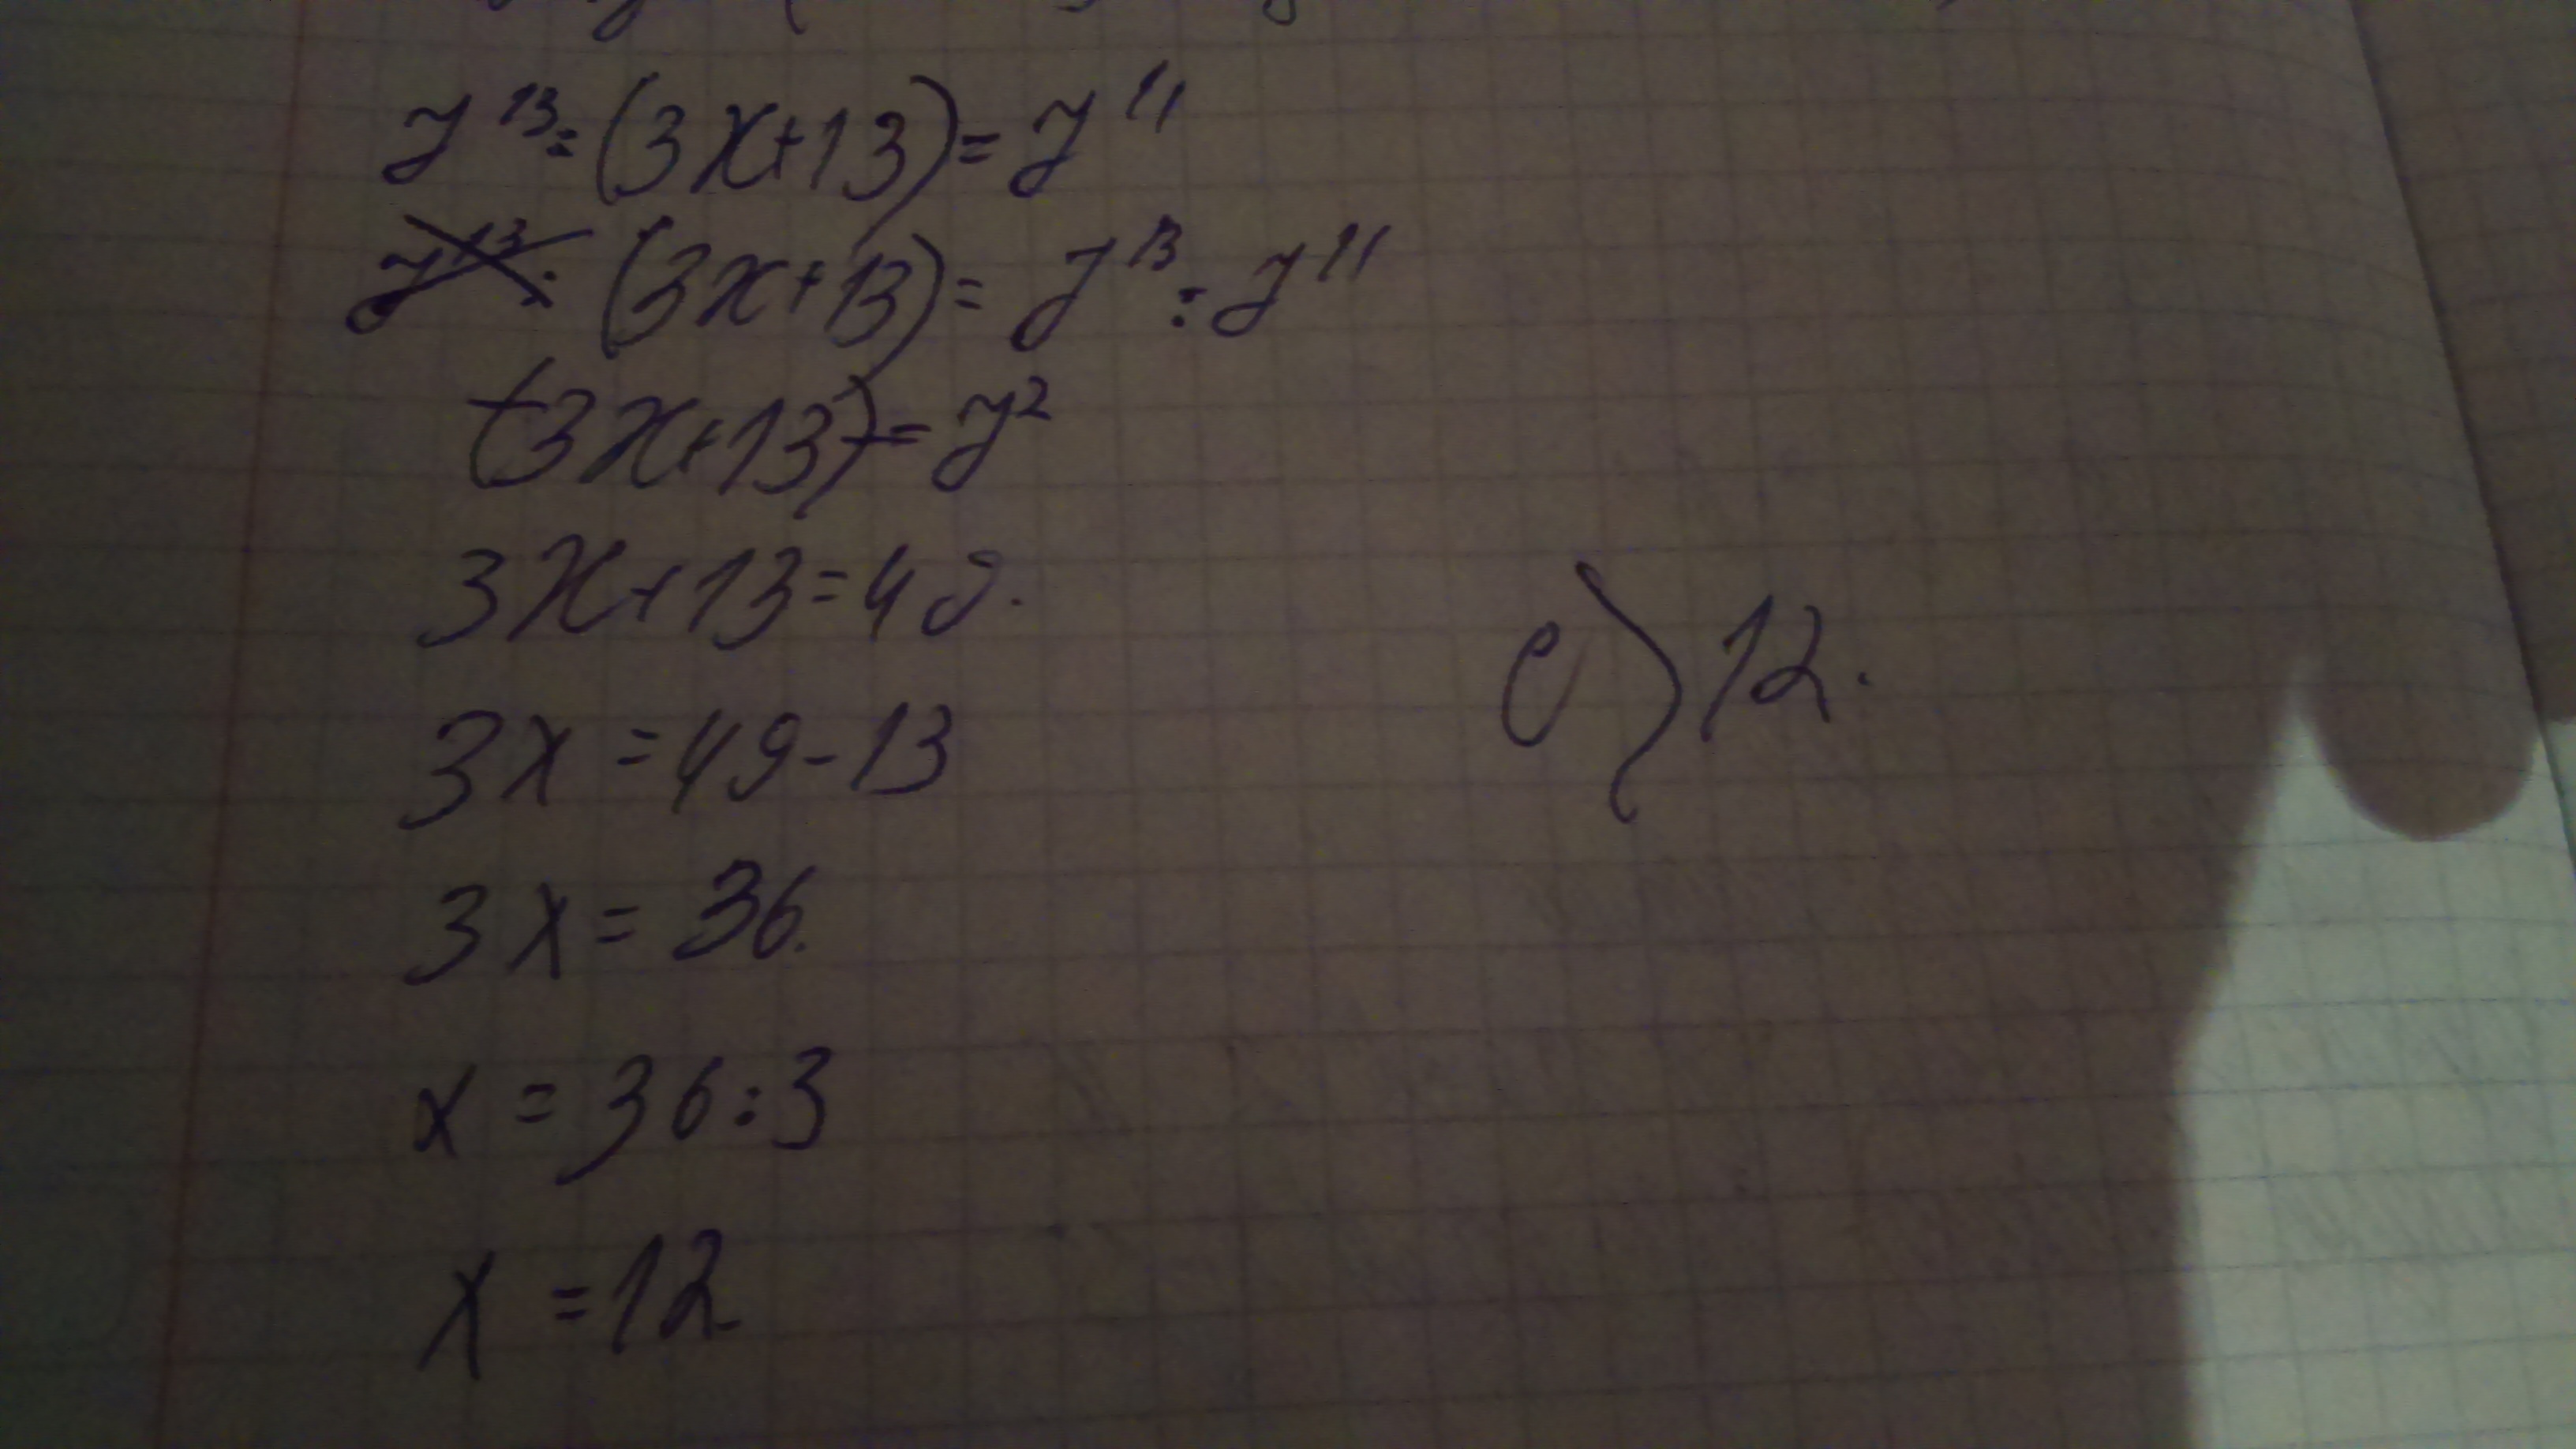 7¹³ : (3x+13) = 7¹¹
(3x+13) = 7¹³ : 7¹¹
(3x+13) = 7²
3x+13=49.
3x = 49-13
3x = 36.
x = 36:3
x = 12
e) 12.